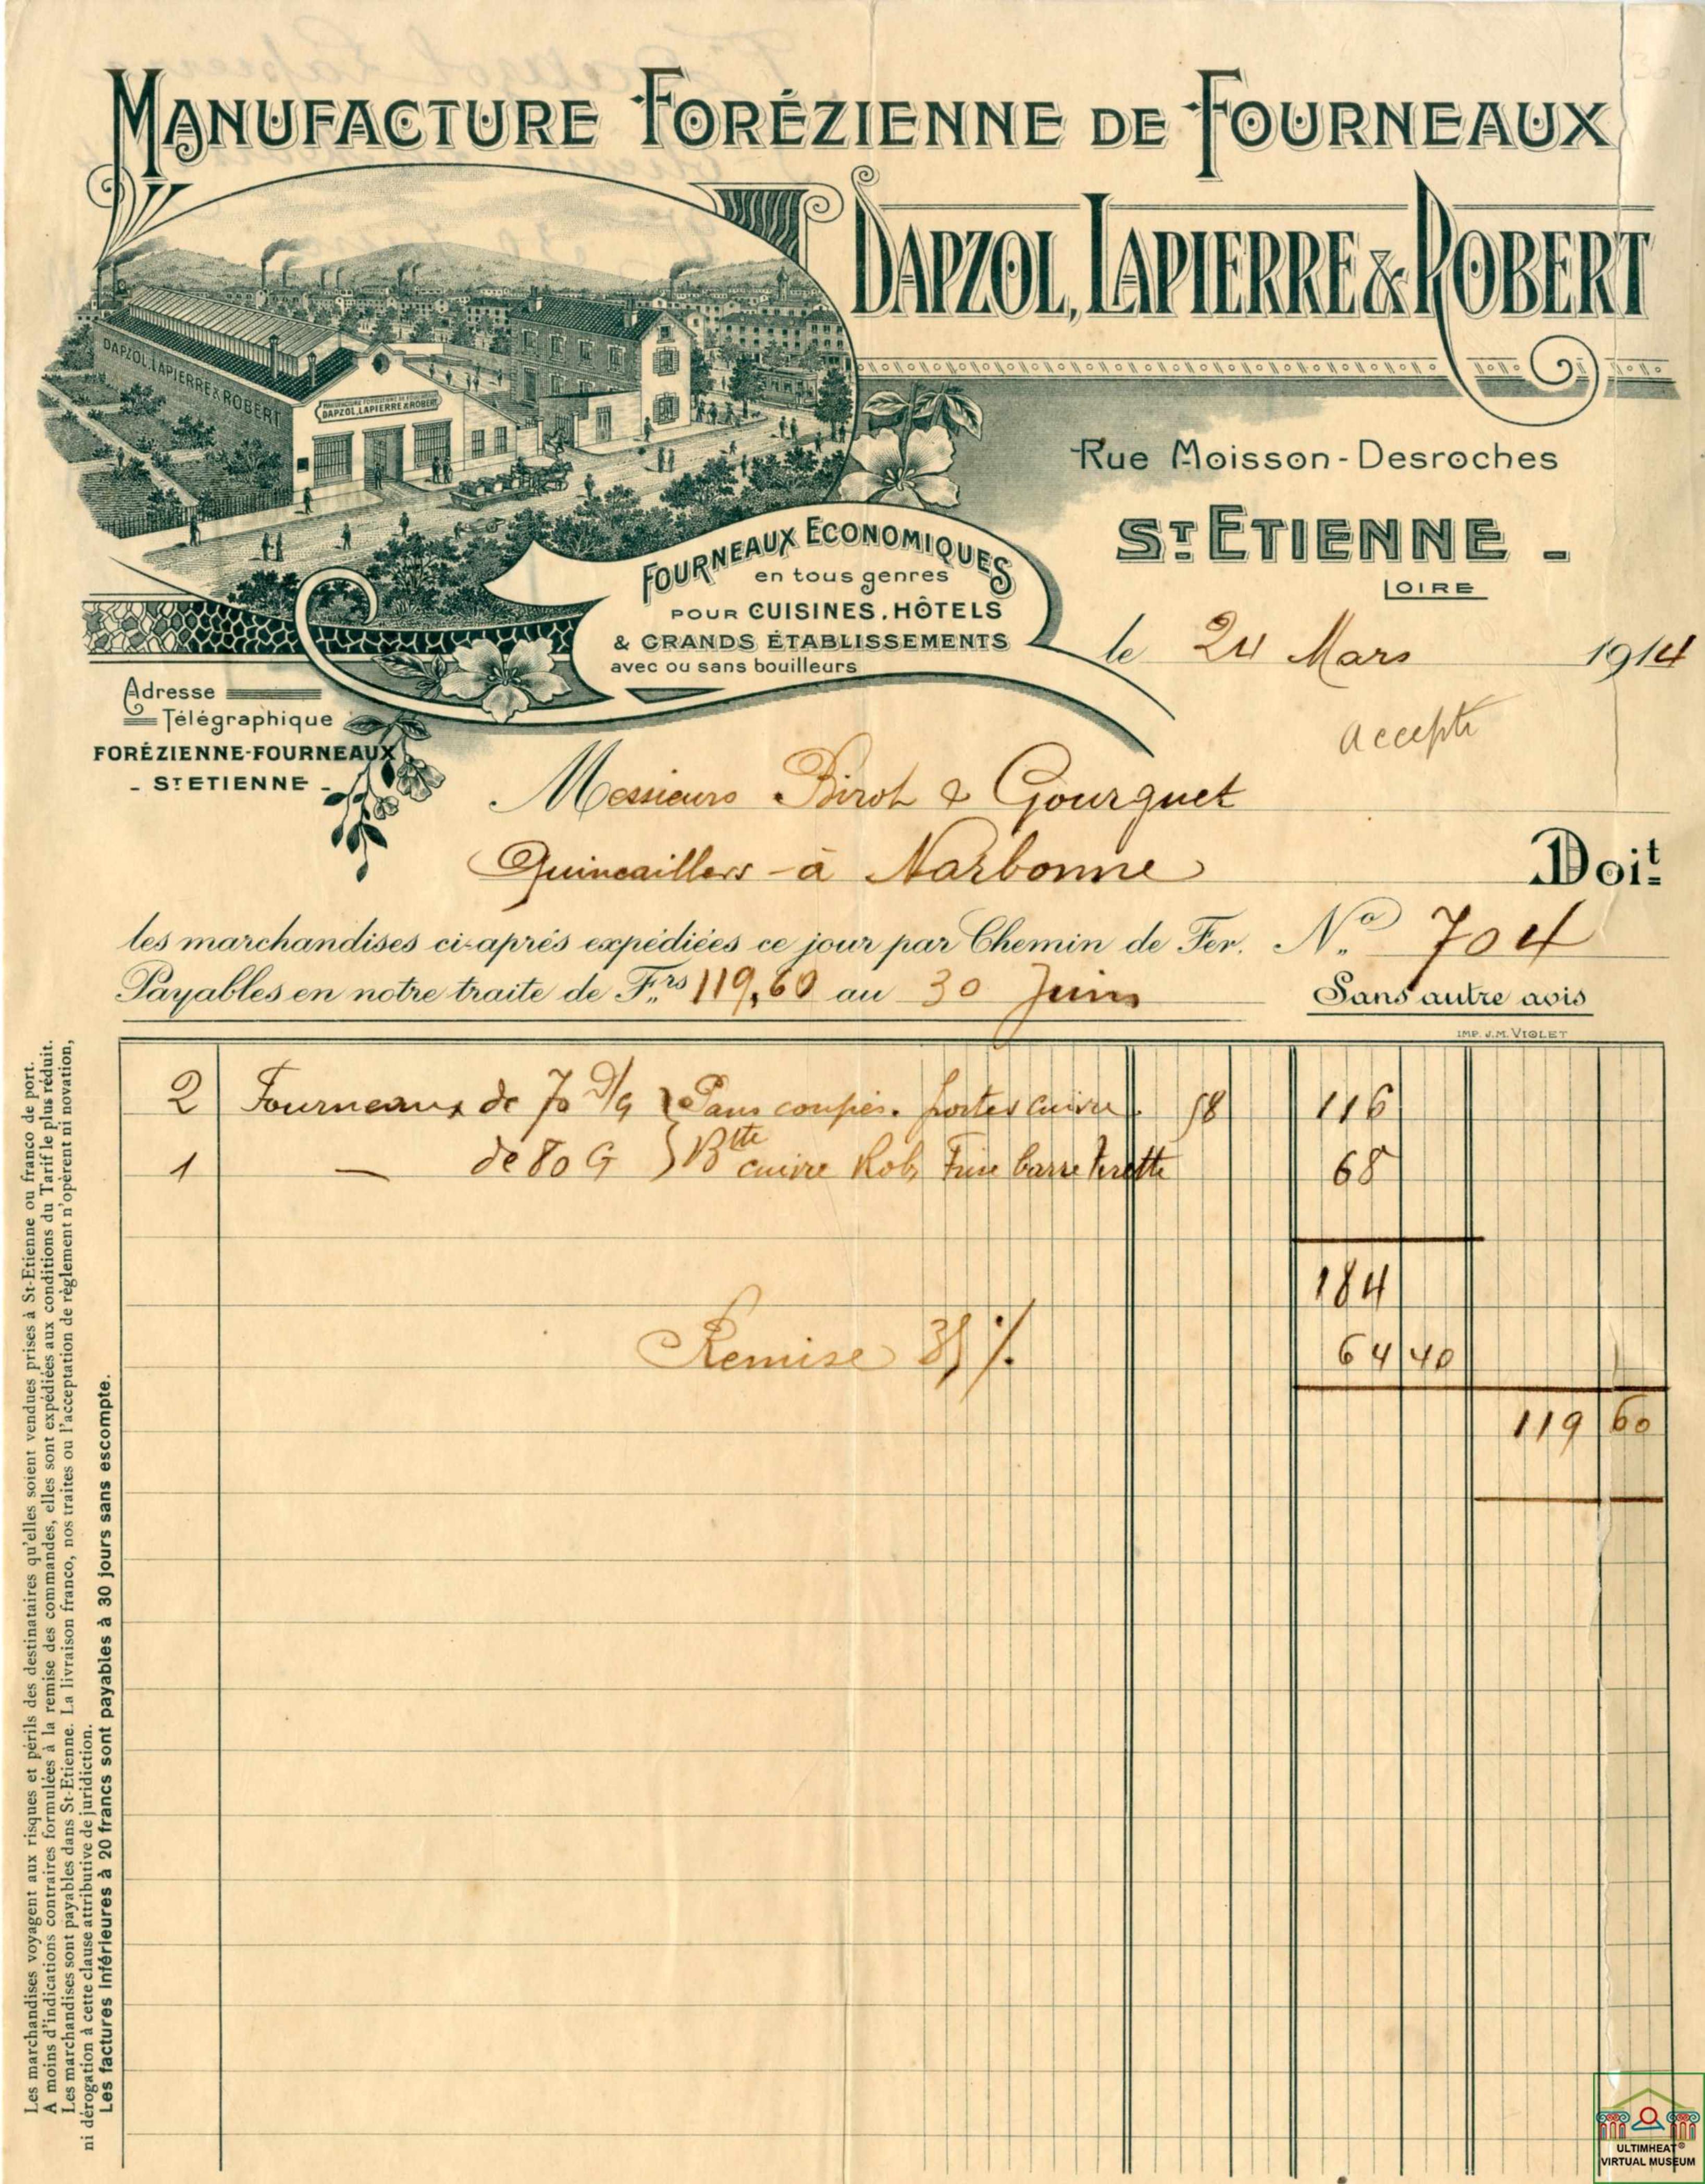 MANUFACTURE FORÉZIENNE DE FOURNEAUX
DAPZOL, LAPIERRE & ROBERT
DAPZOL, LAPIERRE & ROBERT
MANUFACTURE FORÉZIENNE DE FOURNEAUX
DAPZOL, LAPIERRE & ROBERT
Rue Moisson-Desroches
ST ETIENNE -
LOIRE
FOURNEAUX ECONOMIQUES
en tous genres
POUR CUISINES, HÔTELS
& GRANDS ÉTABLISSEMENTS
avec ou sans bouilleurs
le 24 Mars 1914
Adresse
Télégraphique
FORÉZIENNE-FOURNEAUX
- ST ETIENNE -
accepté
Messieurs Birot & Gourguet
Quincaillers à Narbonne
Doit
les marchandises ci-après expédiées ce jour par Chemin de Fer. No. 704
Payables en notre traite de Frs 119,60 au 30 Juin Sans autre avis
IMP. J.M. VIOLET
2 Fourneaux de 70 D/G } Pans coupés. portes cuivre. 58 116
1 — de 80 G } Btte cuivre Rob. Frise barre 68
184
Remise 35 % 64 40
119 60
Les marchandises voyagent aux risques et périls des destinataires qu'elles soient vendues prises à St-Etienne ou franco de port.
A moins d'indications contraires formulées à la remise des commandes, elles sont expédiées aux conditions du Tarif le plus réduit.
Les marchandises sont payables dans St-Etienne. La livraison franco, nos traites ou l'acceptation de règlement n'opèrent ni novation,
ni dérogation à cette clause attributive de juridiction.
Les factures inférieures à 20 francs sont payables à 30 jours sans escompte.
ULTIMHEAT®
VIRTUAL MUSEUM